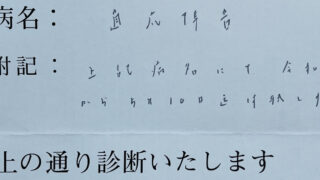 病名： 適応障害
附記： 上記病名にて 令和
から5月10日迄は
上の通り診断いたします